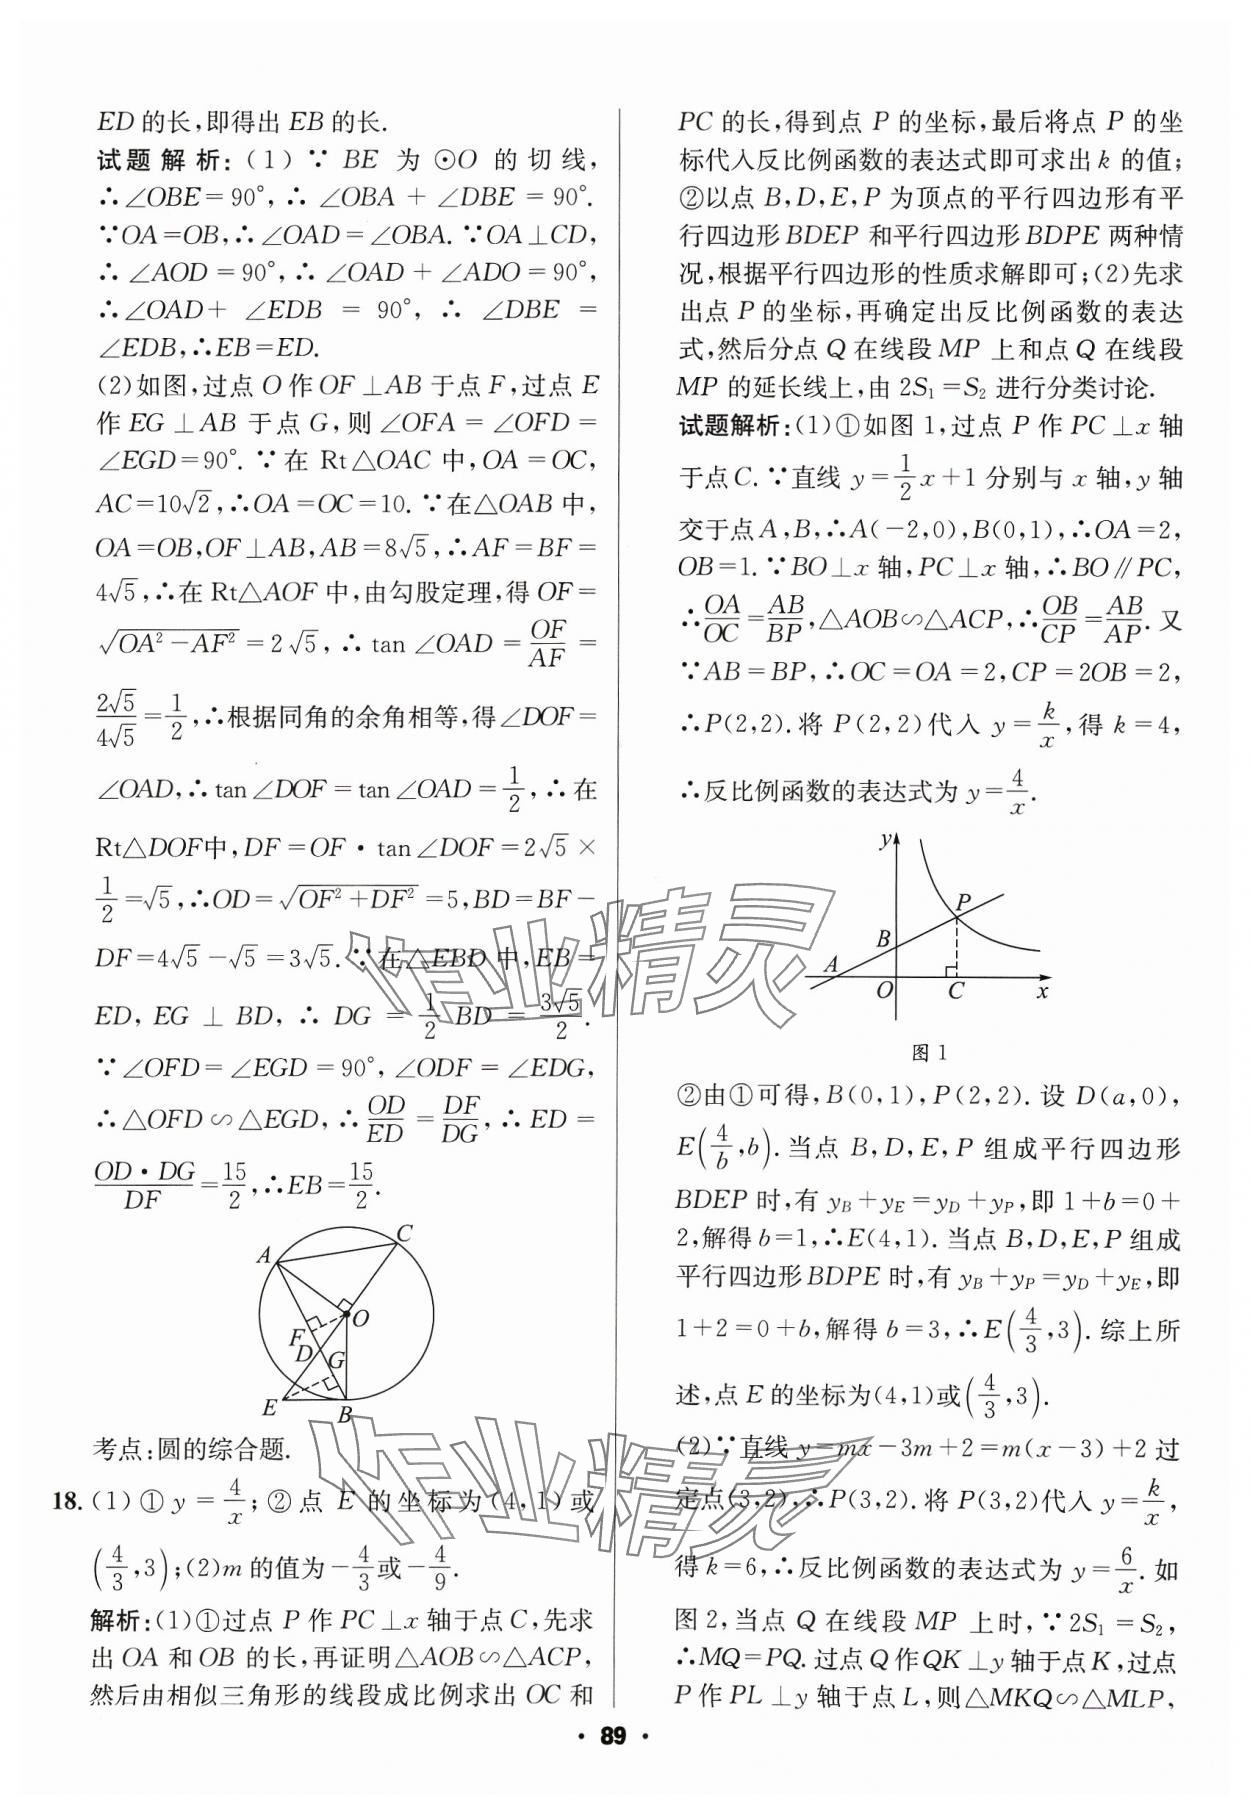 ED的长,即得出EB的长.
试题解析:(1)∵BE为⊙O的切线,
∴∠OBE=90°,∴∠OBA+∠DBE=90°.
∵OA=OB,∴∠OAD=∠OBA.∵OA⊥CD,
∴∠AOD=90°,∴∠OAD+∠ADO=90°,
∴∠OAD+∠EDB=90°,∴∠DBE=
∠EDB,∴EB=ED.
(2)如图,过点O作OF⊥AB于点F,过点E
作EG⊥AB于点G,则∠OFA=∠OFD=
∠EGD=90°.∵在Rt△OAC中,OA=OC,
AC=10√2,∴OA=OC=10.∵在△OAB中,
OA=OB,OF⊥AB,AB=8√5,∴AF=BF=
4√5,∴在Rt△AOF中,由勾股定理,得OF=
√(OA²-AF²)=2√5,∴tan∠OAD=OF/AF=
2√5/4√5=1/2,∴根据同角的余角相等,得∠DOF=
∠OAD,∴tan∠DOF=tan∠OAD=1/2,∴在
Rt△DOF中,DF=OF·tan∠DOF=2√5×
1/2=√5,∴OD=√(OF²+DF²)=5,BD=BF-
DF=4√5-√5=3√5.∵在△EBD中,EB=
ED,EG⊥BD,∴DG=1/2BD=3√5/2.
∵∠OFD=∠EGD=90°,∠ODF=∠EDG,
∴△OFD∽△EGD,∴OD/ED=DF/DG,∴ED=
OD·DG/DF=15/2,∴EB=15/2.
A
C
O
F
D
G
E
B
考点:圆的综合题.
18.(1)①y=4/x;②点E的坐标为(4,1)或
(4/3,3);(2)m的值为-4/3或-4/9.
解析:(1)①过点P作PC⊥x轴于点C,先求
出OA和OB的长,再证明△AOB∽△ACP,
然后由相似三角形的线段成比例求出OC和
PC的长,得到点P的坐标,最后将点P的坐
标代入反比例函数的表达式即可求出k的值;
②以点B,D,E,P为顶点的平行四边形有平
行四边形BDEP和平行四边形BDPE两种情
况,根据平行四边形的性质求解即可;(2)先求
出点P的坐标,再确定出反比例函数的表达
式,然后分点Q在线段MP上和点Q在线段
MP的延长线上,由2S₁=S₂进行分类讨论.
试题解析:(1)①如图1,过点P作PC⊥x轴
于点C.∵直线y=1/2x+1分别与x轴,y轴
交于点A,B,∴A(-2,0),B(0,1),∴OA=2,
OB=1.∵BO⊥x轴,PC⊥x轴,∴BO∥PC,
∴OA/OC=AB/BP,△AOB∽△ACP,∴OB/CP=AB/AP.又
∵AB=BP,∴OC=OA=2,CP=2OB=2,
∴P(2,2).将P(2,2)代入y=k/x,得k=4,
∴反比例函数的表达式为y=4/x.
y
P
B
A
O
C
x
图1
②由①可得,B(0,1),P(2,2).设D(a,0),
E(4/b,b).当点B,D,E,P组成平行四边形
BDEP时,有y_B+y_E=y_D+y_P,即1+b=0+
2,解得b=1,∴E(4,1).当点B,D,E,P组成
平行四边形BDPE时,有y_B+y_P=y_D+y_E,即
1+2=0+b,解得b=3,∴E(4/3,3).综上所
述,点E的坐标为(4,1)或(4/3,3).
(2)∵直线y=mx-3m+2=m(x-3)+2过
定点(3,2),∴P(3,2).将P(3,2)代入y=k/x,
得k=6,∴反比例函数的表达式为y=6/x.如
图2,当点Q在线段MP上时,∵2S₁=S₂,
∴MQ=PQ.过点Q作QK⊥y轴于点K,过点
P作PL⊥y轴于点L,则△MKQ∽△MLP,
· 89 ·
作业精灵
作业精灵